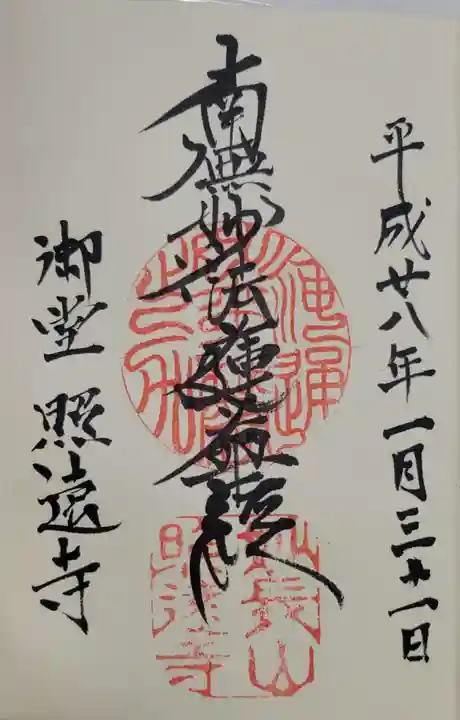 平成廿八年一月三十一日
南無妙法蓮華経
御堂 照遠寺
妙長山
照遠寺